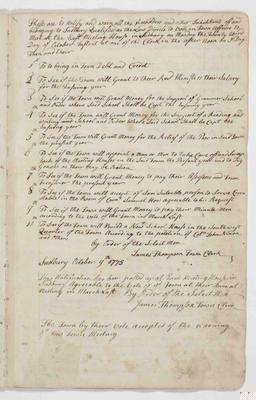 These are to notify and warn all the freeholders and other Inhabitants of and
belonging to Sudbury Qualified as the Law Directs to Vote in Town affairs to
Meet at the East Meeting House in Sudbury on Monday the twenty third
Day of October Instant at one of the Clock in the after Noon to
Then and there
1 To bring in Town Debt and Credit
2 To See if the Town will Grant to their Revd Minister their Salary
for the Ensuing year
3 To See if the Town will Grant Money for the Support of Grammer School
and from whom said School shall be Kept the Ensuing year
4 To See if the Town will Grant Money for the Support of a Reading and
writing and School and from whom said School Shall be Kept the
Ensuing year
5 To See if the Town will Grant Money for the Relief of the Poor in said Town
the present year
6 To See if the Town will appoint a Man or Men to take Care of and Sweep
each of the Meeting Houses in the said Town the present year
7 To See if the Town will Grant Money to pay their Assessors and Town
Treasurer the present year
8 To See if the Town will accept of Some Suitable person to Serve
in the Room of Corn
9 To See if the Town will pay their Minute men
according to the vote of the Town in March last
10 To See if the Town will Build a New School House in the Southwest
Quarter of the Town According to the petition of Capt John Nixon
and Others
by Order of the Select Men
James Thompson Town Clerk
Sudbury October 9th 1775
This Notification has been posted up at Each Meeting House in
Sudbury Agreeable to the vote of sd Town at their Annual
Meeting in March last By Order of the Select Men
James Thompson Town Clerk
The Town by their vote accepted of the warning
of this Town Meeting